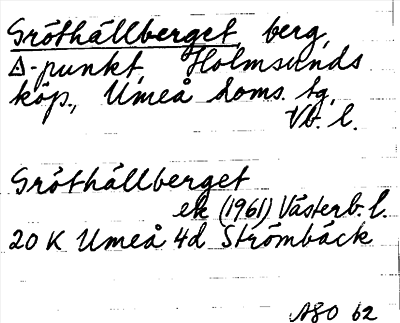 Gröthällberget, berg,
△-punkt, Holmsunds
köp., Umeå doms. tg,
Vb. l.
Gröthällberget
ek (1961) Västerb. l.
20 K Umeå 4d Strömbäck
ASO 62